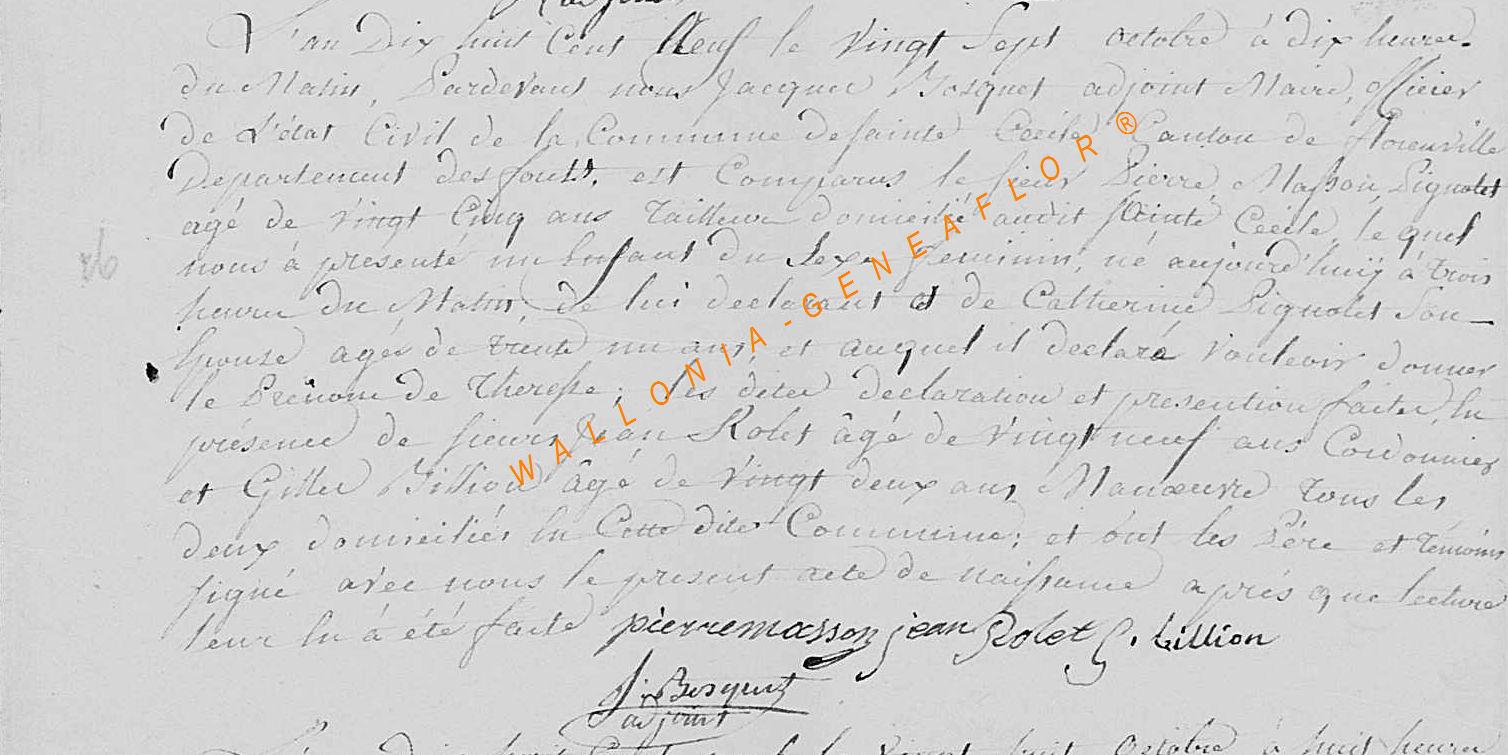 L'an Dix huit Cent Neuf le Vingt Sept octobre à dix heures
du Matin, Pardevant nous Jacques Bosquet adjoint Maire, officier
de L'état Civil de la Commune de sainte Cecile Canton de florenville
Departement des forets, est Comparus le sieur Pierre Masson Pignolet
agé de Vingt Cinq ans Tailleur domicilié audit Sainte Cecile, le quel
nous à presenté un Enfant du Sexe Feminin, né aujourd'huÿ à trois
heures du Matin, de lui declarant et de Catherine Pignolet Son
Epouse agée de trente un ans, et auquel il declaré Vouloir donner
le Prénom de Therese; les dites declaration et presention faites En
présence de sieurs Jean Rolet âgé de Vingt neuf ans Cordonnier
et Gilles Tillion âgé de Vingt deux ans Manœuvre Tous les
deux domiciliés En Cette dite Commune; et ont les Pére et Témoins
signé avec nous le present acte de naissance aprés que lecture
leur En á été faite pierre masson jean Rolet G. tillion
J. Bosquet
adjoint
Vingt huit Octobre à huit heures
WALLONIA-GENEAFLOR ®